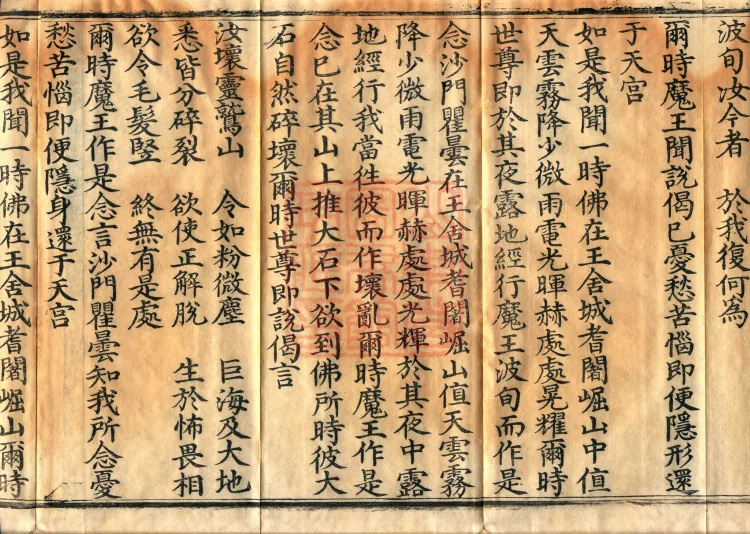 波旬汝今者　於我復何為
爾時魔王聞說偈已憂愁苦惱即便隱形還
于天宮
如是我聞一時佛在王舍城耆闍崛山中值
天雲霧降少微雨電光暉赫處處晃耀爾時
世尊即於其夜露地經行魔王波旬而作是
念沙門瞿曇在王舍城耆闍崛山值天雲霧
降少微雨電光暉赫處處光輝於其夜中露
地經行我當往彼而作壞亂爾時魔王作是
念已在其山上推大石下欲到佛所時彼大
石自然碎壞爾時世尊即說偈言
汝壞靈鷲山　令如粉微塵　巨海及大地
悉皆分碎裂　欲使正解脫　生於怖畏相
欲令毛髮竪　終無有是處
爾時魔王作是念言沙門瞿曇知我所念憂
愁苦惱即便隱身還于天宮
如是我聞一時佛在王舍城耆闍崛山爾時